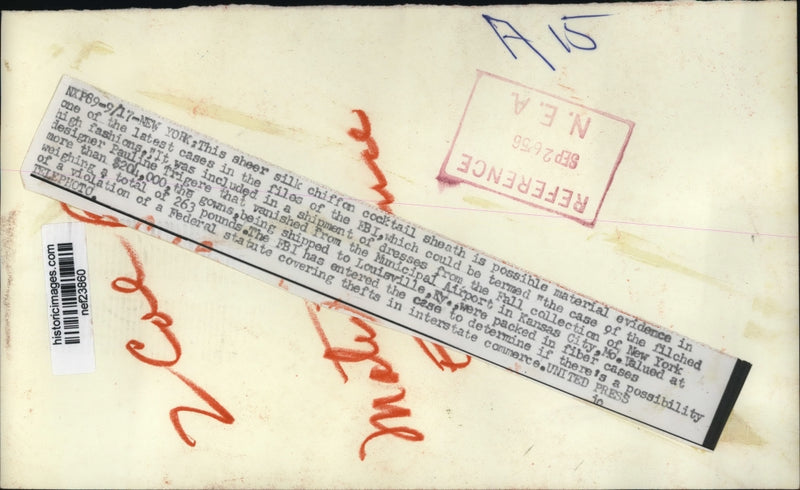 A 15
REFERENCE
SEP 26 56
N.E.A.
NXP69-9/17-NEW YORK:This sheer silk chiffon cocktail sheath is possible material evidence in
one of the latest cases in the files of the FBI,which could be termed "the case of the filched
high fashions."It was included in a shipment of dresses from the Fall collection of New York
designer Pauline Trigere that vanished from the Municipal Airport in Kansas City,Mo.Valued at
more than $204,000,the gowns,being shipped to Louisville,KY.,were packed in fiber cases
weighing a total of 263 pounds.The FBI has entered the case to determine if there's a possibility
of a violation of a Federal statute covering thefts in interstate commerce.UNITED PRESS
TELEPHOTO.
historicimages.com
nef23860
2 Col